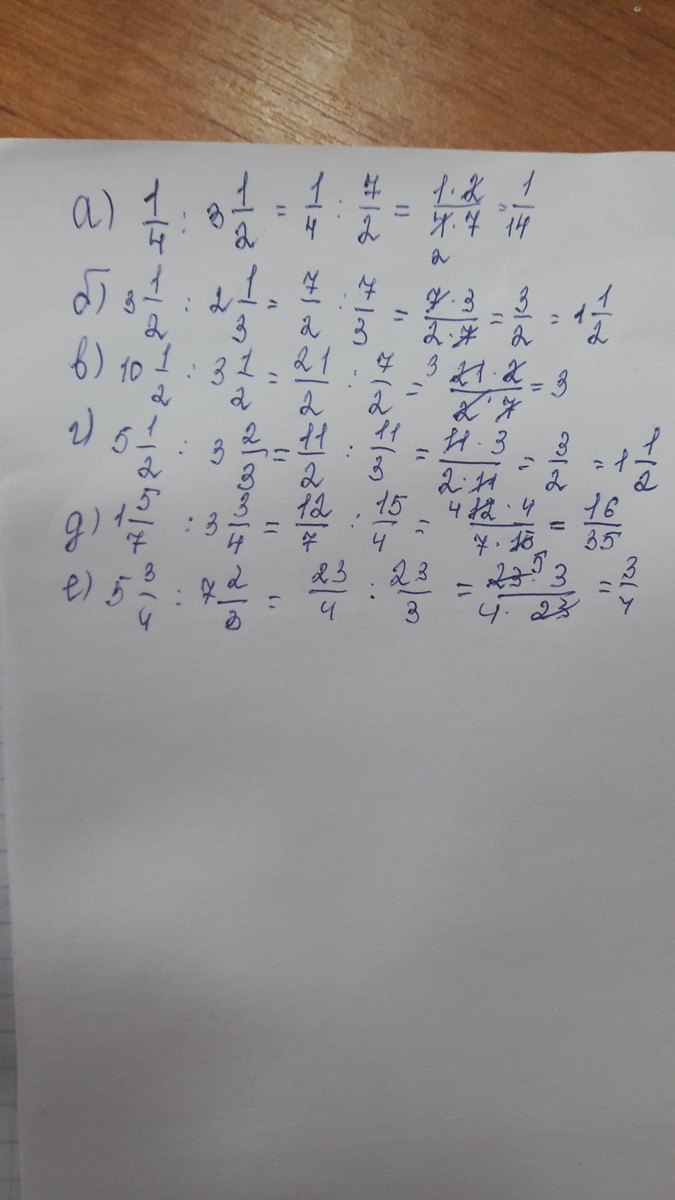 а) 1/4 : 3 1/2 = 1/4 : 7/2 = 1·2/4·7 = 1/14
2
б) 3 1/2 : 2 1/3 = 7/2 : 7/3 = 7·3/2·7 = 3/2 = 1 1/2
в) 10 1/2 : 3 1/2 = 21/2 : 7/2 = 3 21·2/2·7 = 3
г) 5 1/2 : 3 2/3 = 11/2 : 11/3 = 11·3/2·11 = 3/2 = 1 1/2
д) 1 5/7 : 3 3/4 = 12/7 : 15/4 = 4 12·4/7·15 = 16/35
5
е) 5 3/4 : 7 2/3 = 23/4 : 23/3 = 23·3/4·23 = 3/4